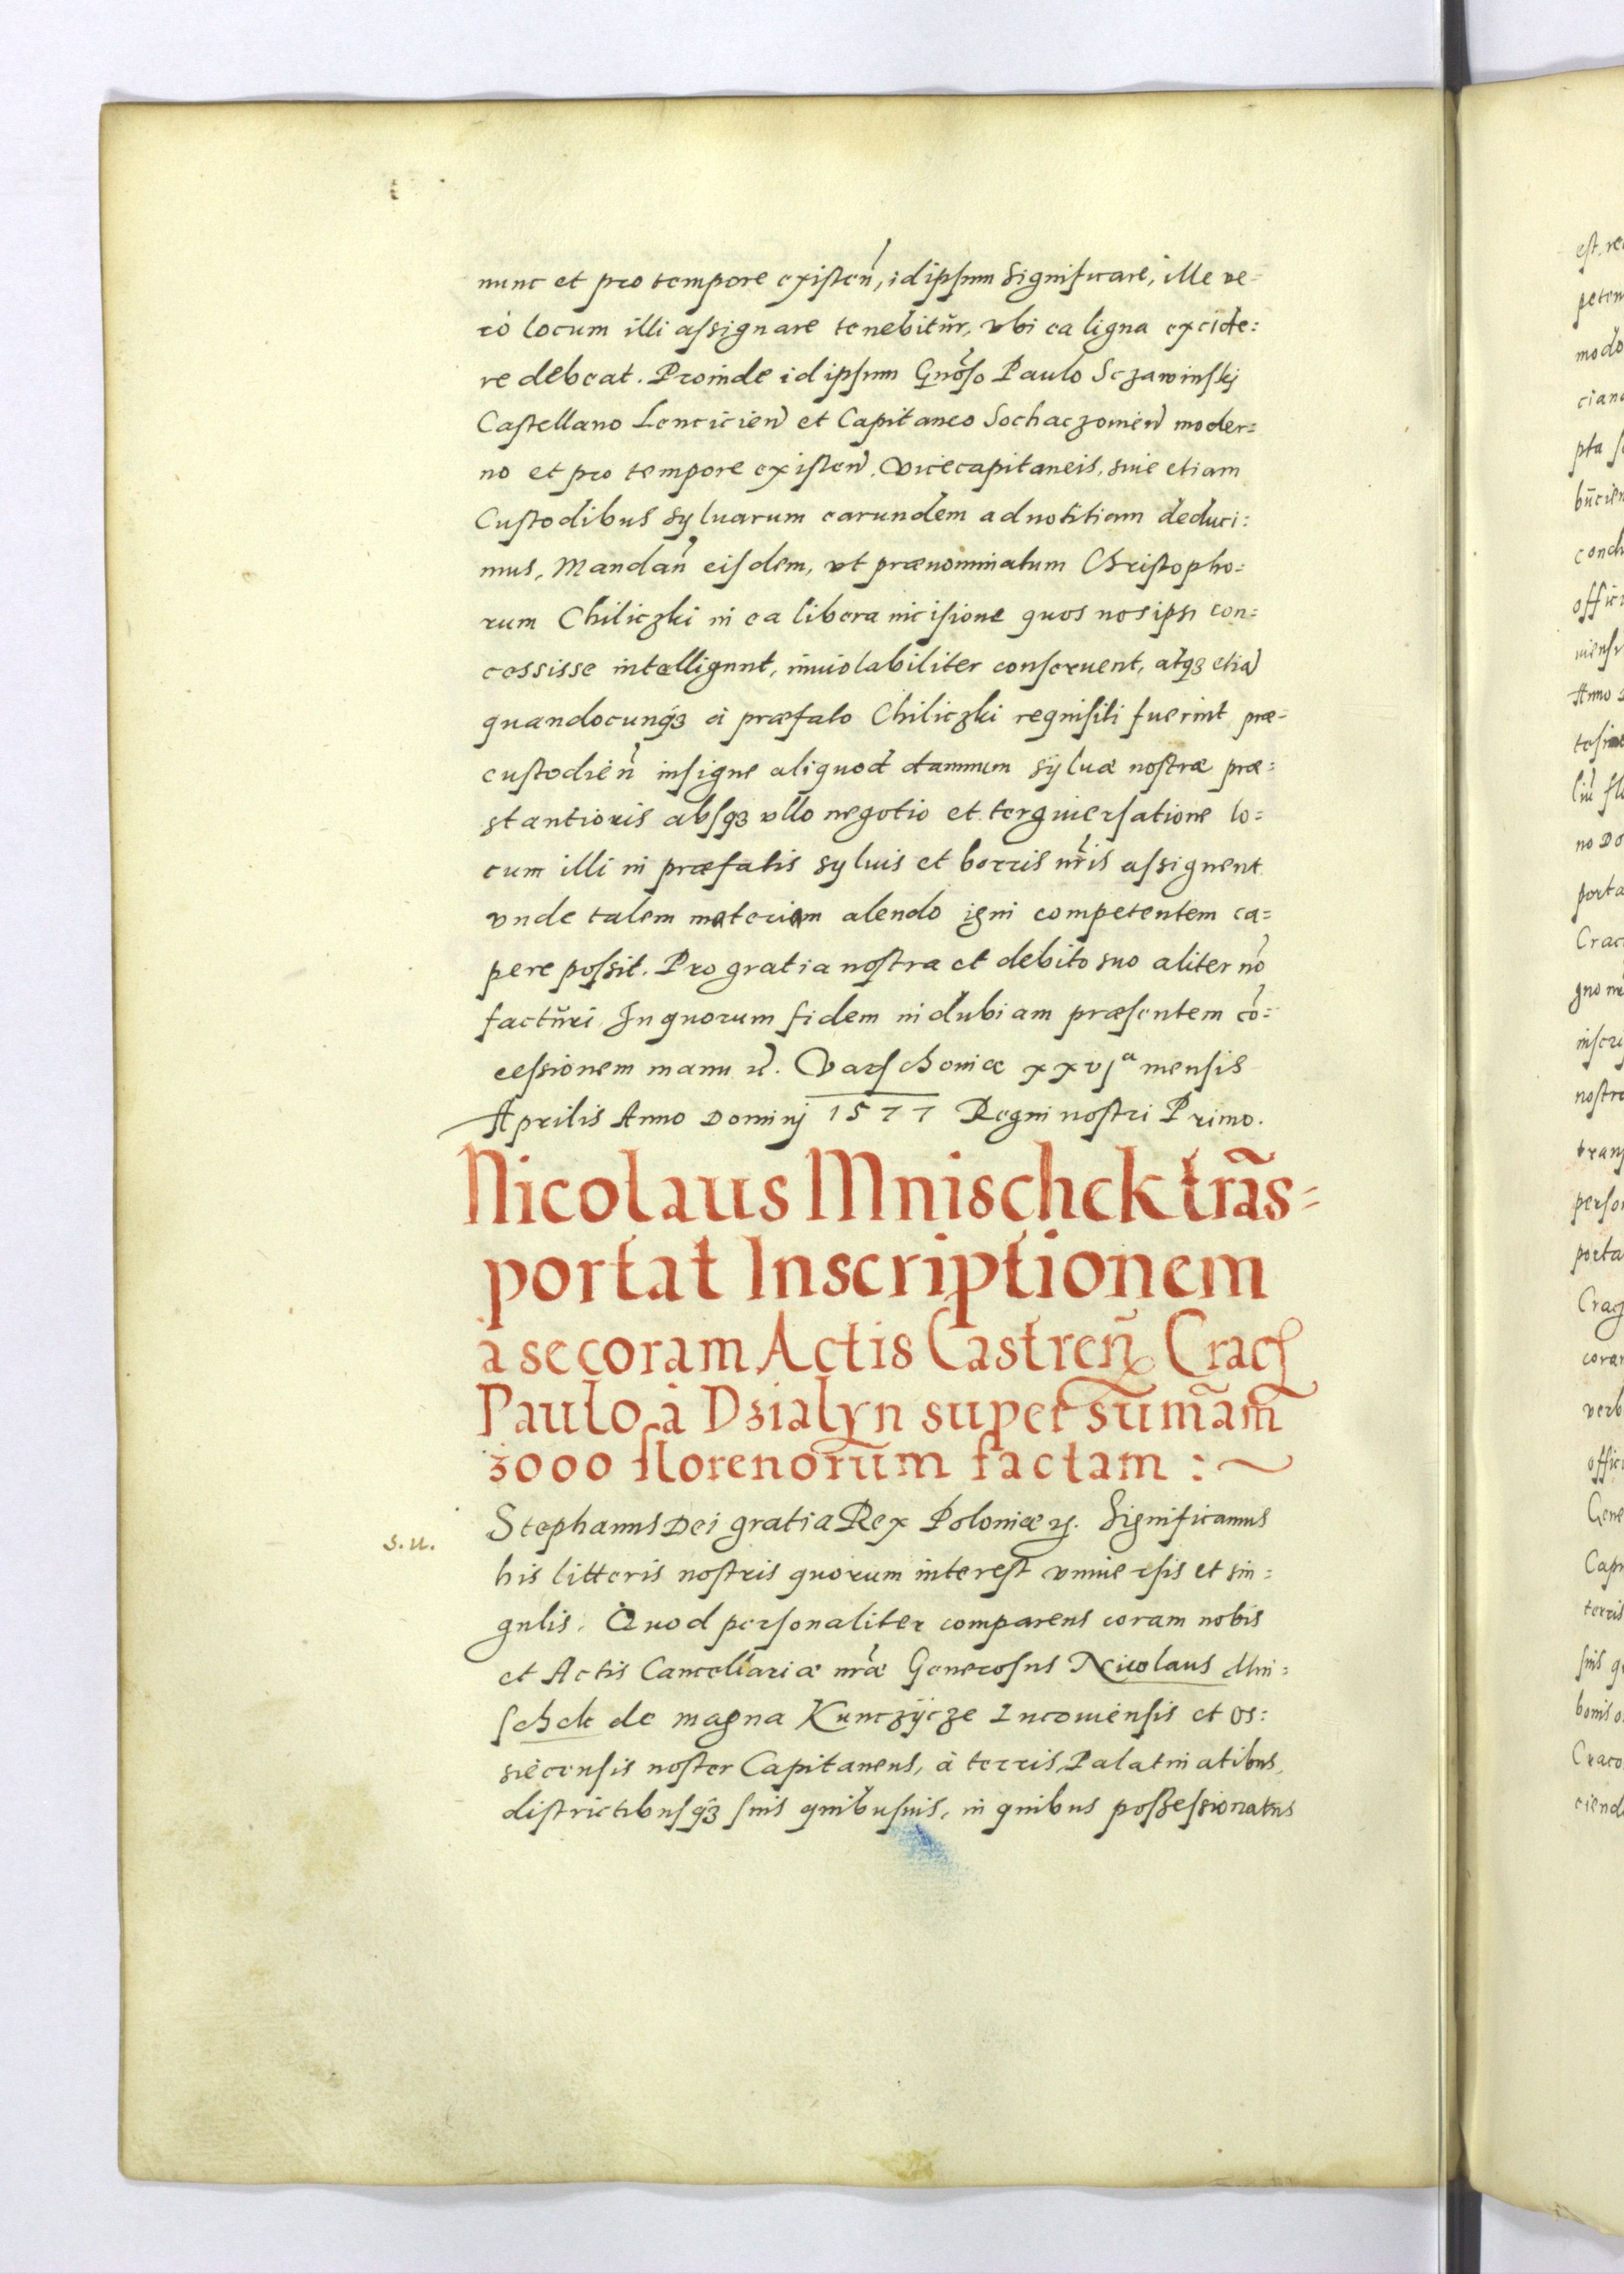 nunc et pro tempore existen̄, id ipsum significare, ille ve=
rò locum illi assignare tenebitŭr, vbi ea ligna excide:
re debeat. Proinde id ipsum Gnõso Paulo Sczawinskj
Castellano Lencicien̄ et Capitaneo Sochaczouien̄ moder=
no et pro tempore existen̄. Vicecapitaneis, siue etiam
Custodibus syluarum earundem ad notitiam deduci:
mus, Mandan̄ eisdem, vt prænominatum Christopho=
rum Chiliczki in ea libera incisione quos nos ipsi con=
cessisse intelligunt, inuiolabiliter conseruent, atq₃ etiā
quandocunq₃ à præfato Chiliczki requisiti fuerint præ=
custodien̄ insigne aliquod damnum syluæ nostræ præ=
stantioris absq₃ vllo negotio et tergiuersatione lo=
cum illi in præfatis syluis et borris nr̄is assignent
vnde talem materiam alendo igni competentem ca=
pere possit. Pro gratia nostra et debito suo aliter nō
factŭri. In quorum fidem indubiam præsentem cō=
cessionem manu ꝛc̄. Varschouiæ xxvjª mensis
Aprilis Anno Dominj 1577 Regni nostri Primo.
Nicolaus Mnischek trãs=
portat Inscriptionem
a se coram Actis Castren̄ Crac̄
Paulo à Dzialyn super sum̄am
3000 florenorum factam :~
s. u.
Stephanus Dei gratia Rex Poloniæ ꝛc. Significamus
his litteris nostris quorum interest vniuersis et sin=
gulis. Quod personaliter comparens coram nobis
et Actis Cancellariæ nr̄æ Generosus Nicolaus Mni=
schek de magna Kunczÿcze Lucouiensis et Os:
siecensis noster Capitaneus, à terris, Palatinatibus,
districtibusq₃ suis quibusuis, in quibus possessionatus